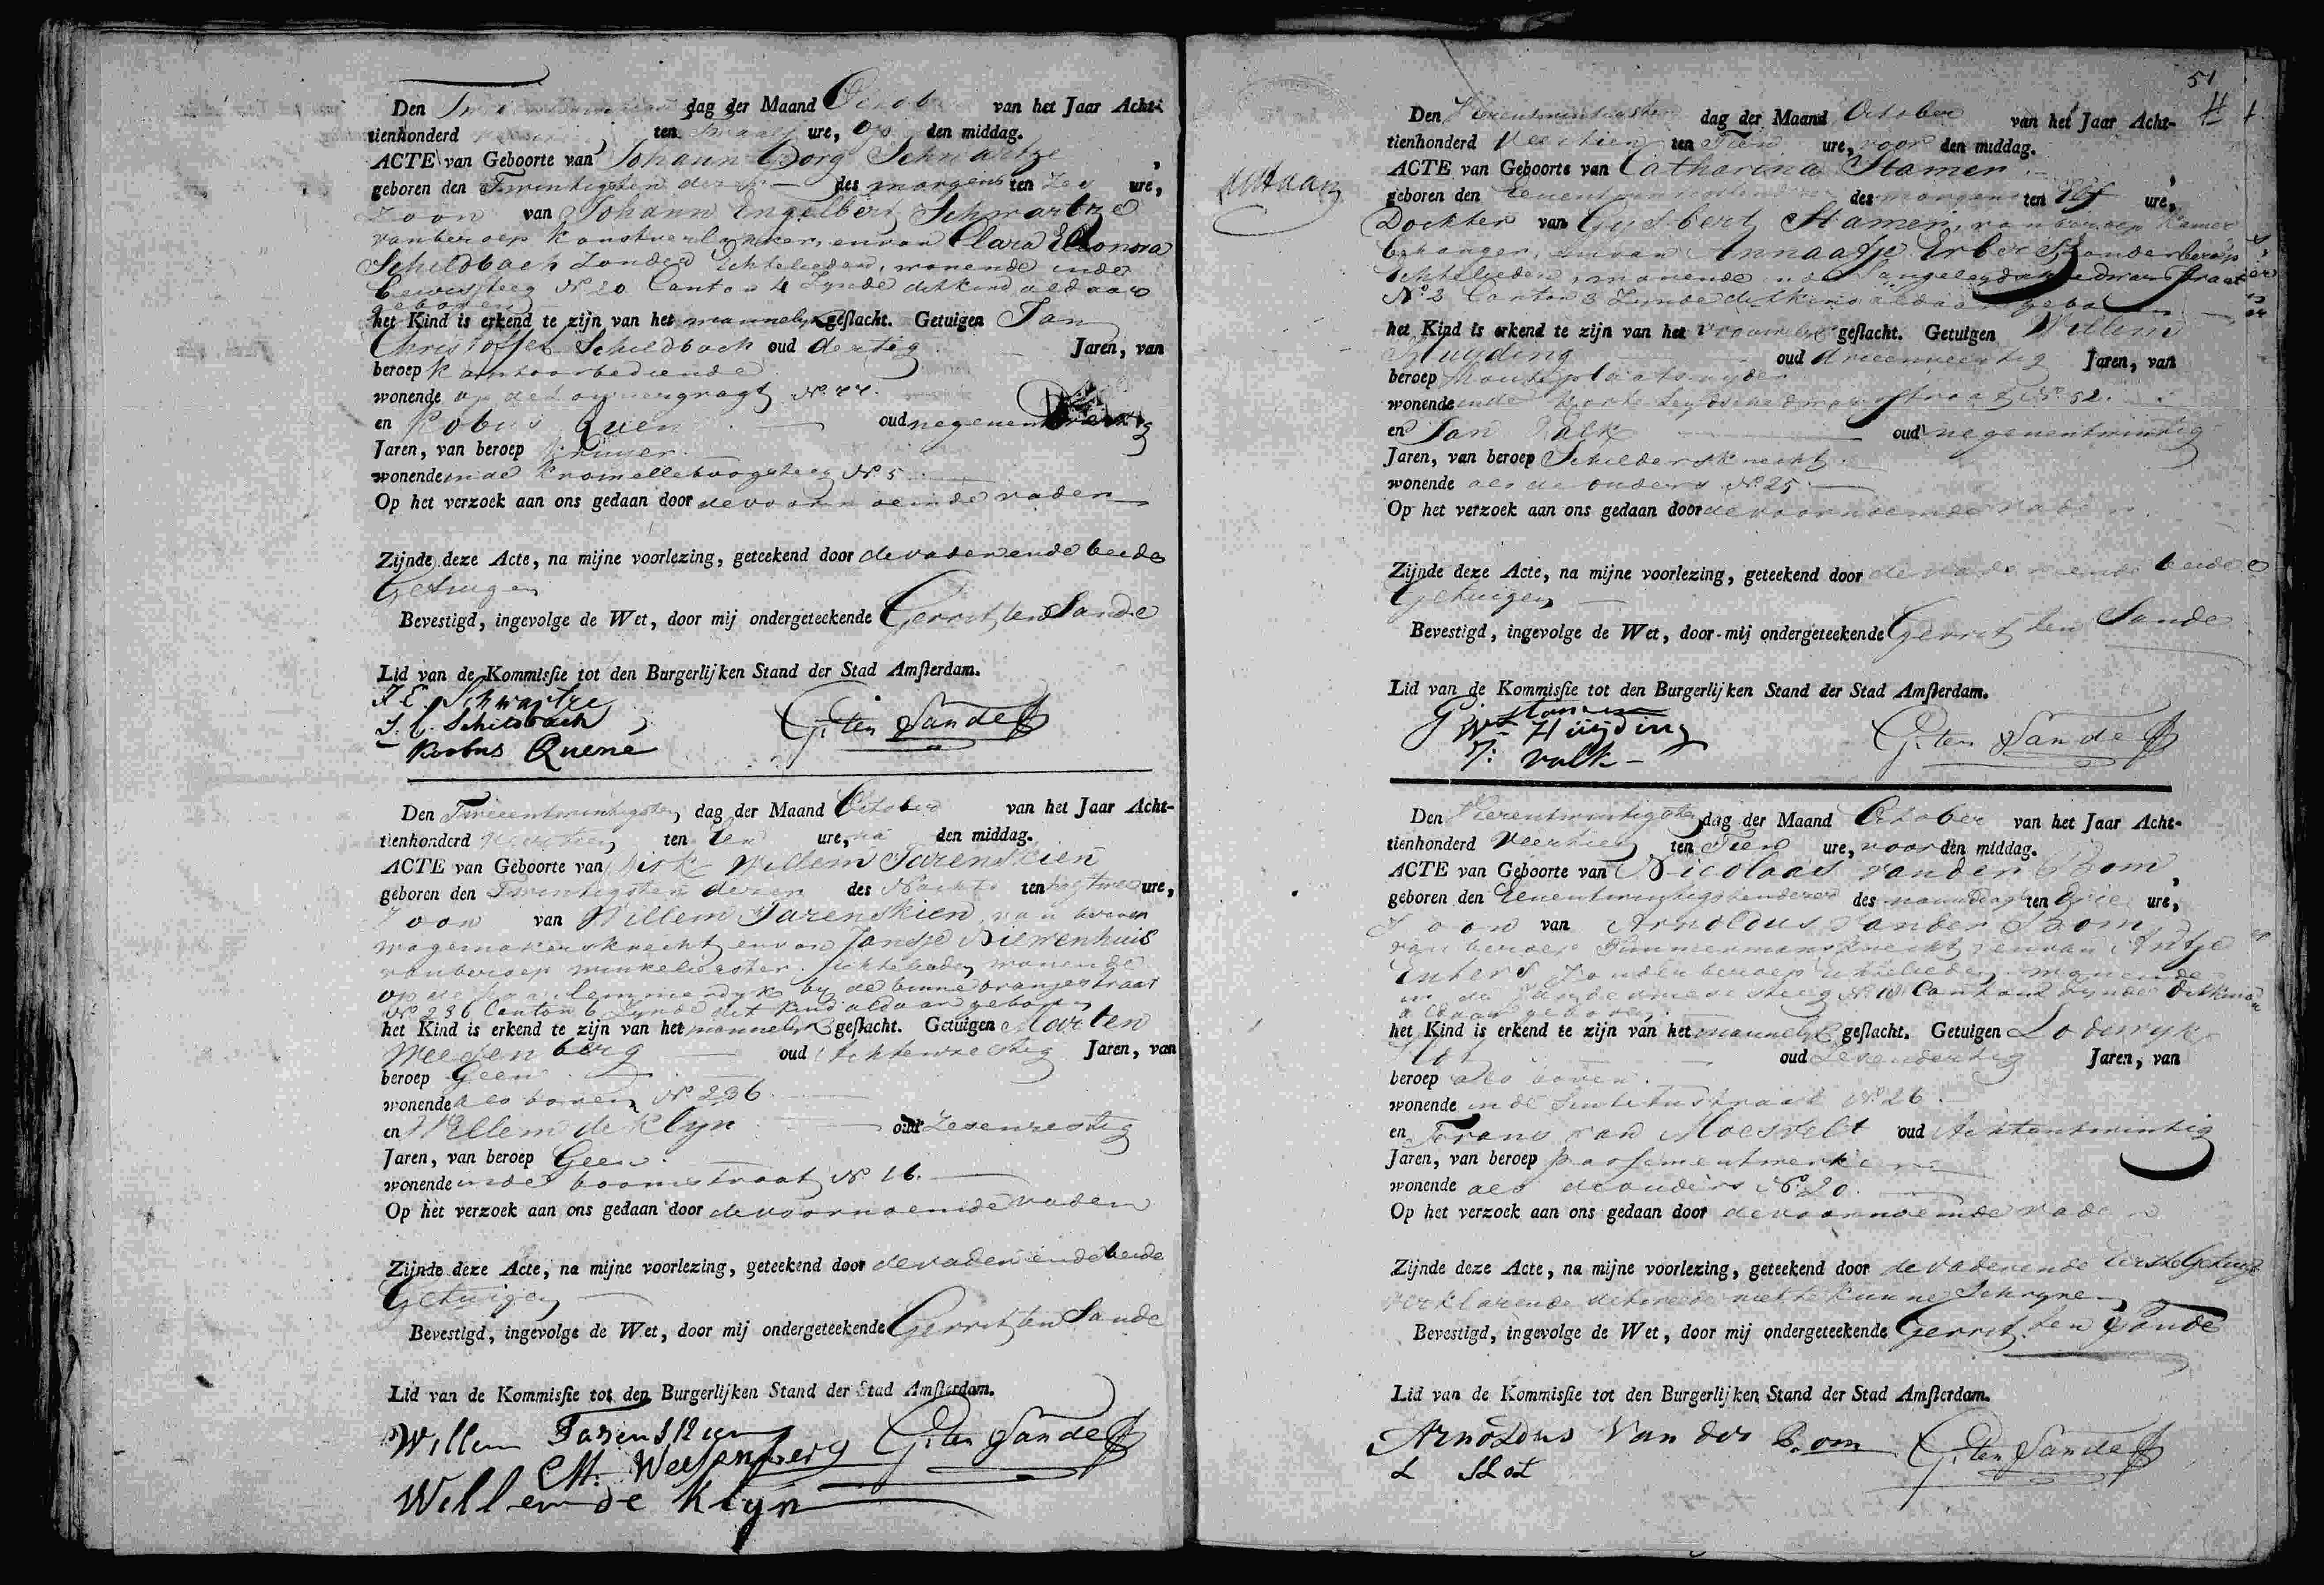 Den dag der Maand October van het Jaar Acht-
tienhonderd ten Twaalf ure, op den middag.
ACTE van Geboorte van Johann Georg Schwartze,
geboren den Twintigsten dezer des morgens ten Zes ure,
Zoon van Johann Engelbert Schwartze
van beroep Konstverlakker, en van Clara Eleonora
Schildbach Zonder Echtelieden, wonende inde
No 20 Canton 4 Zynde dit kind aldaar
geboren
het Kind is erkend te zijn van het mannelyk geslacht. Getuigen Jan
Christoffel Schildbach oud dertig Jaren, van
beroep Kantoorbediende
wonende op de No 77.
en Kobus Quene oud negenen
Jaren, van beroep Kruyer
wonende inde Kromelleboogsteeg No 5
Op het verzoek aan ons gedaan door de voornoemde vader
Zijnde deze Acte, na mijne voorlezing, geteekend door de vader en de beide
Getuigen
Bevestigd, ingevolge de Wet, door mij ondergeteekende Gerrit ten Sande
Lid van de Kommissie tot den Burgerlijken Stand der Stad Amsterdam.
J E. Schwartze
J. C. Schildbach G. ten Sande
Kobus Quené
Den Tweeentwintigsten dag der Maand October van het Jaar Acht-
tienhonderd Veertien ten Een ure, na den middag.
ACTE van Geboorte van Dirk Willem Tarenskien
geboren den Twintigsten dezer des Nachts ten half twee ure,
Zoon van Willem Tarenskien van beroep
wagemakersknecht en van Jansje Niewenhuis
van beroep winkelierster Echtelieden, wonende
op de by de binne oranjestraat
No 236 Canton 6 Zynde dit kind aldaar geboren
het Kind is erkend te zijn van het mannelyk geslacht. Getuigen Marten
Weesenberg oud Achtenzestig Jaren, van
beroep Geen
wonende als boven No 236
en Willem de Klyn oud Zesenzestig
Jaren, van beroep Geen.
wonende inde boomstraat No 16.
Op het verzoek aan ons gedaan door de voornoemde vader
Zijnde deze Acte, na mijne voorlezing, geteekend door de vader en de beide
Getuigen
Bevestigd, ingevolge de Wet, door mij ondergeteekende Gerrit ten Sande
Lid van de Kommissie tot den Burgerlijken Stand der Stad Amsterdam.
Willem Tarenskien G. ten Sande
M. Weesenberg
Willem de Klyn
51
Den Vierentwintigsten dag der Maand October van het Jaar Acht-
tienhonderd Veertien ten Tien ure, voor den middag.
ACTE van Geboorte van Catharina Stamen,
geboren den des morgens ten Elf ure,
Dochter van Gysbert Stamen, van beroep Kamer
behanger, en van Annaatje Zonder beroep
Echtelieden, wonende dwarsstraat
No 2 Canton 3 Zynde dit kind aldaar geboren
het Kind is erkend te zijn van het vrouwelyk geslacht. Getuigen Willem
Huyding oud drieenveertig Jaren, van
beroep
wonende inde korte leydschedwarsstraat No 52.
en Jan Valk oud negenentwintig
Jaren, van beroep Schildersknecht
wonende als de ouders No 25
Op het verzoek aan ons gedaan door de voornoemde vader
Zijnde deze Acte, na mijne voorlezing, geteekend door de vader en de beide
Getuigen
Bevestigd, ingevolge de Wet, door mij ondergeteekende Gerrit ten Sande
Lid van de Kommissie tot den Burgerlijken Stand der Stad Amsterdam.
G Stamen
Wm Huÿding G. ten Sande
J: valk
Den Vierentwintigsten dag der Maand October van het Jaar Acht-
tienhonderd Veertien ten Tien ure, voor den middag.
ACTE van Geboorte van Nicolaas van der Bom,
geboren den Eenentwintigsten dezer des namiddags ten drie ure,
Zoon van Arnoldus van der Bom
van beroep Timmermansknecht, en van Antje
Enters Zonder beroep Echtelieden wonende
in de No 18 Canton Zynde dit kind
aldaar geboren
het Kind is erkend te zijn van het mannelyk geslacht. Getuigen Lodewyk
Slot oud Zesendertig Jaren, van
beroep als boven.
wonende inde No 26.
en Frans van Moesvelt oud Achtentwintig
Jaren, van beroep passementwerker
wonende als de ouders No 20.
Op het verzoek aan ons gedaan door de voornoemde vader
Zijnde deze Acte, na mijne voorlezing, geteekend door de vader en de eerste Getuige
verklarende de tweede niet te kunne Schryve
Bevestigd, ingevolge de Wet, door mij ondergeteekende Gerrit ten Sande
Lid van de Kommissie tot den Burgerlijken Stand der Stad Amsterdam.
Arnoldus Van der Bom G. ten Sande
L Slot